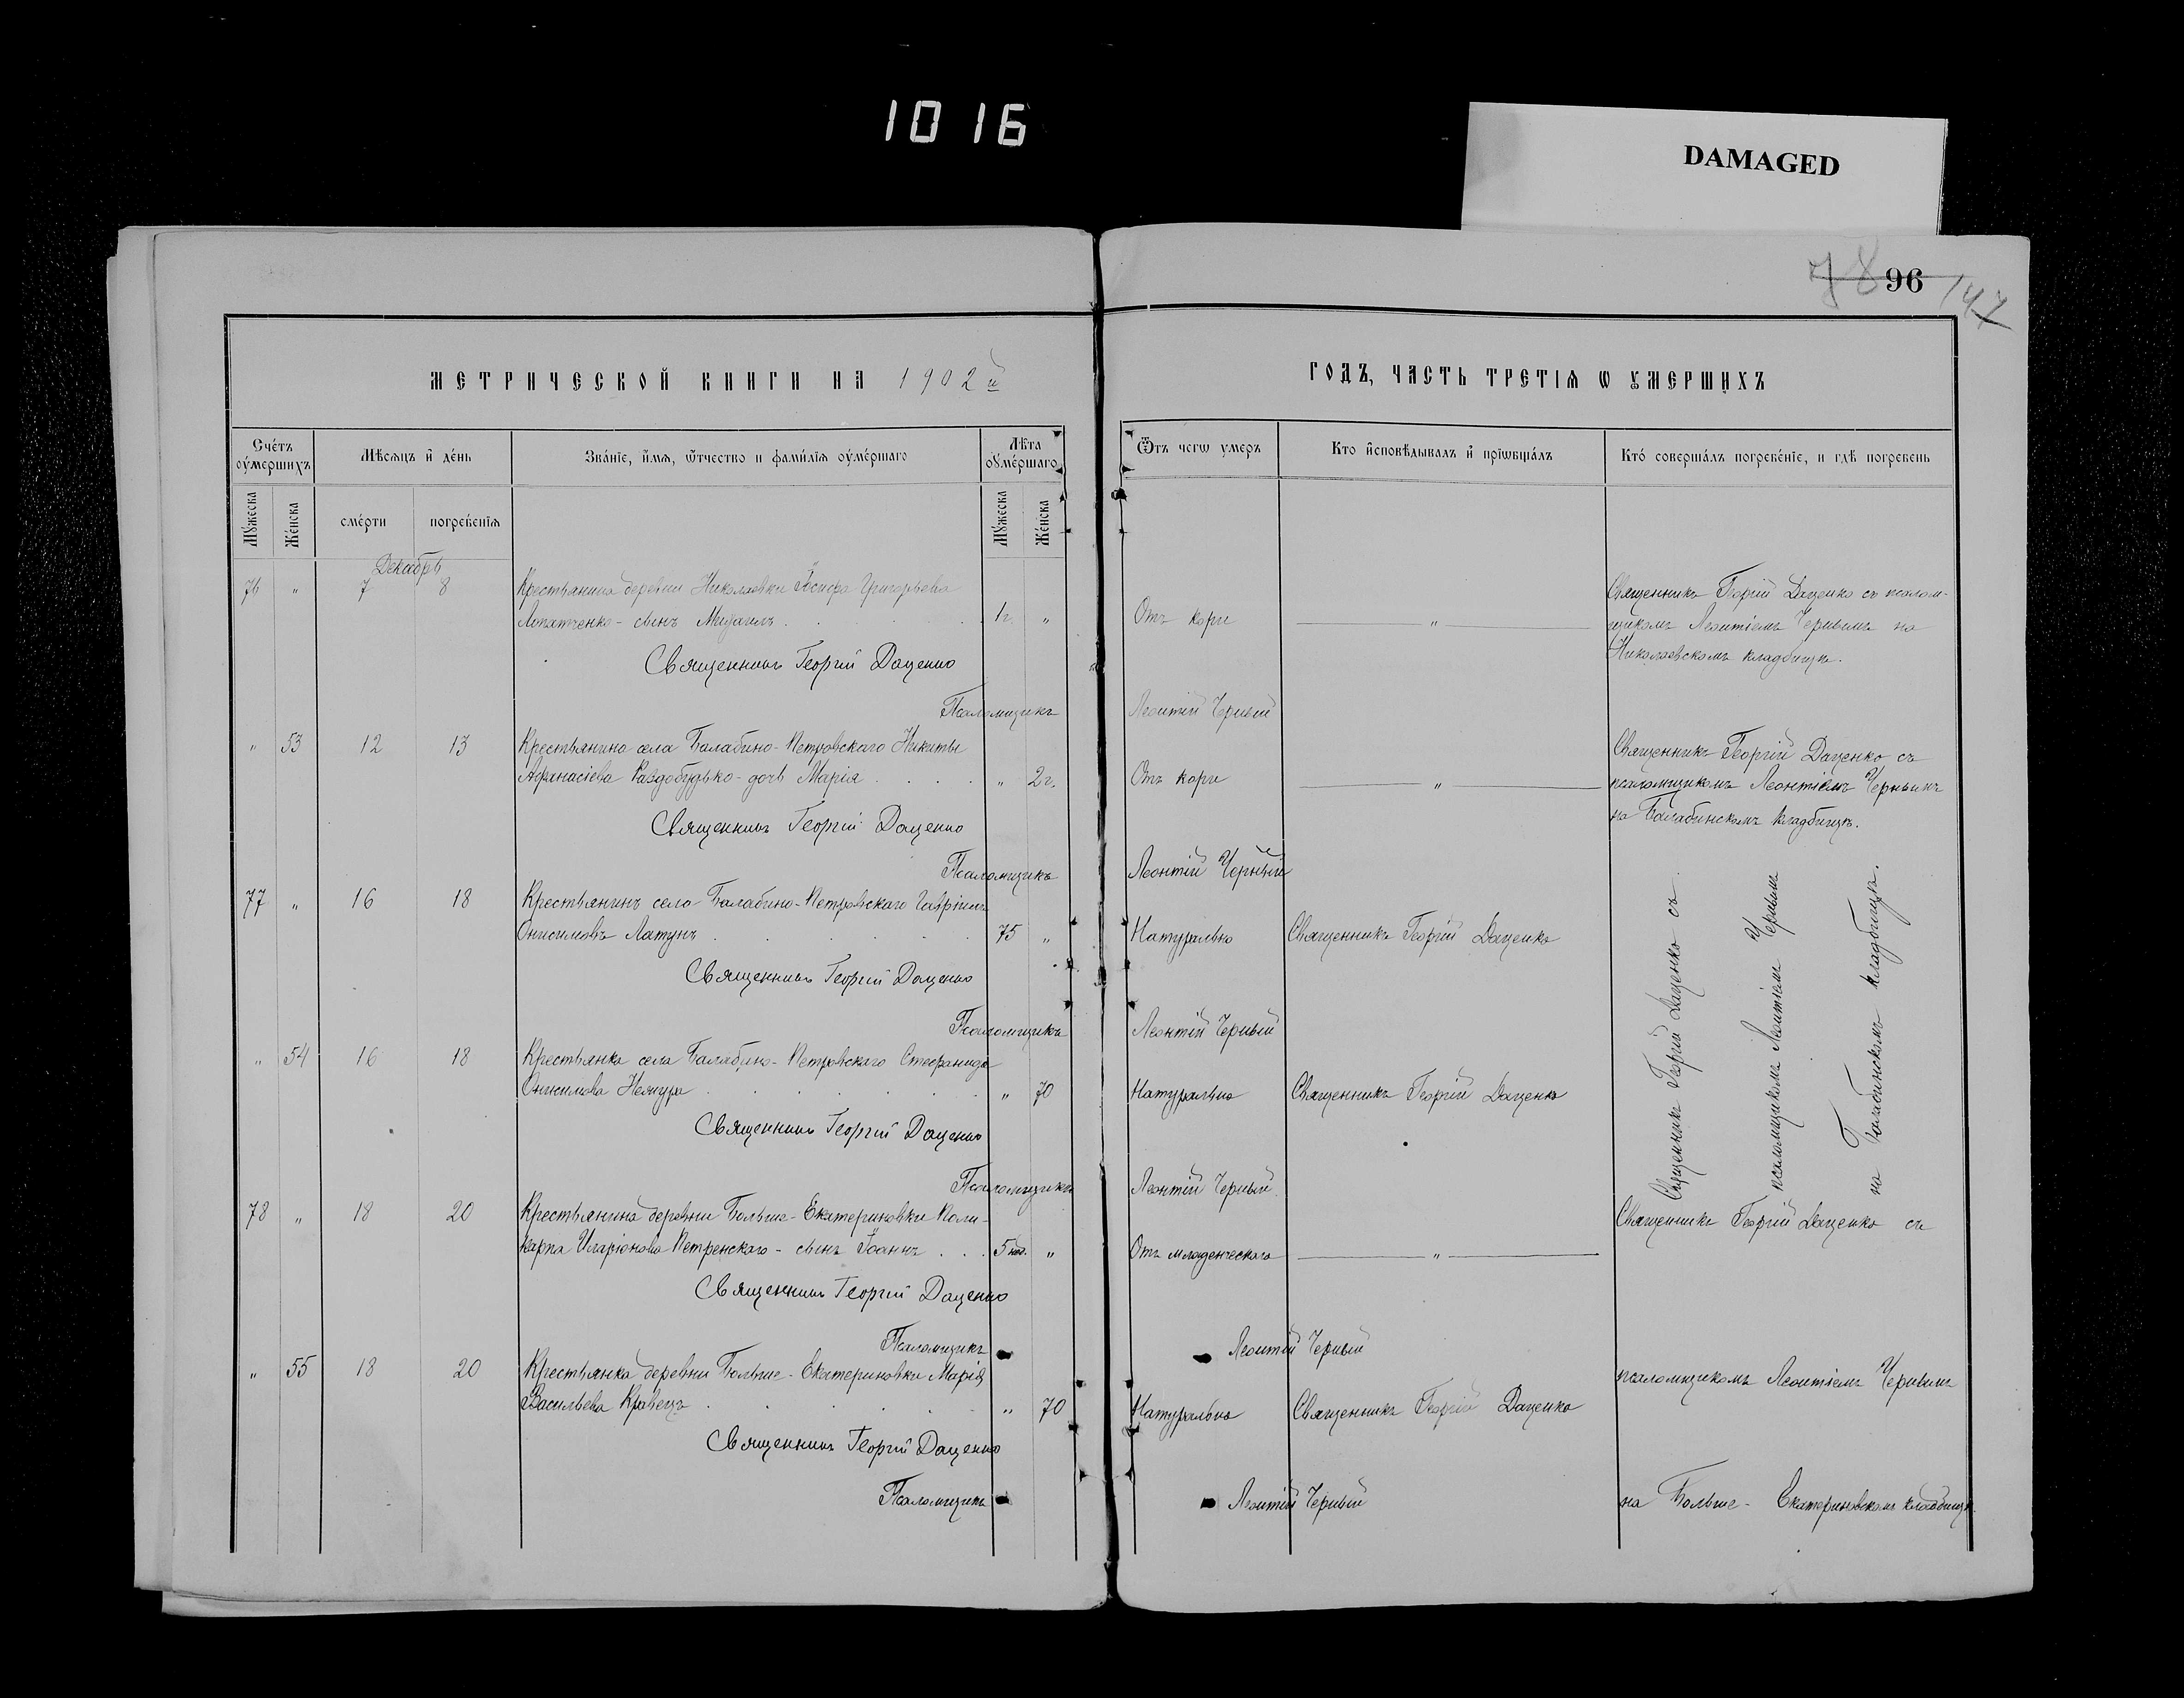 1016
DAMAGED
78 96 147
МЕТРИЧЕСКОЙ КНИГИ НА 1902й
ГОДЪ, ЧАСТЬ ТРЕТІѦ Ѡ ꙊМЕРШИХЪ
Счéтъ оумершихъ
Мѣсяцъ и дéнь
Звáніе, и́мя, ѿтчество и фами́лія оумéршаго
Лѣта оумéршаго
Ѿтъ чегѡ умеръ
Кто исповѣдывалъ и пріѡбщáлъ
Ктó совершáлъ погребéніе, и гдѣ погребенъ
Мýжеска
Жéнска
смéрти
погребéнія
Мýжеска
Жéнска
Декабрь
76 " 7 8 Крестьянина деревни Николаевки Іосифа Григорьева
Лопатченко - сынъ Михаилъ . . . 1г. " Отъ кори "
Священникъ Георгій Даценко съ псалом-
щикомъ Леонтіемъ Чернымъ на
Николаевскомъ кладбищѣ.
Священникъ Георгій Даценко
Псаломщикъ Леонтій Черный
" 53 12 13 Крестьянина села Балабино-Петровскаго Никиты
Афанасіева Раздобудько - дочь Марія . . . . " 2г. Отъ кори "
Священникъ Георгій Даценко съ
псаломщикомъ Леонтіемъ Чернымъ
на Балабинскомъ кладбищѣ.
Священникъ Георгій Даценко
Псаломщикъ Леонтій Черный
77 " 16 18 Крестьянинъ села Балабино-Петровскаго Гавріилъ
Онисимовъ Латунъ . . . . . 75 " Натурально Священникъ Георгій Даценко
Священникъ Георгій Даценко
Псаломщикъ Леонтій Черный
" 54 16 18 Крестьянка села Балабино-Петровскаго Стефанида
Онисимова . . . . . " 70 Натурально Священникъ Георгій Даценко
Священникъ Георгій Даценко
Псаломщикъ Леонтій Черный
Священникъ Георгій Даценко съ
псаломщикомъ Леонтіемъ Чернымъ
на Балабинскомъ кладбищѣ.
78 " 18 20 Крестьянина деревни Больше-Екатериновки Поли-
карпа Иларіонова Петренскаго - сынъ Іоаннъ . . . 5 " Отъ младенческаго "
Священникъ Георгій Даценко
Псаломщикъ Леонтій Черный
" 55 18 20 Крестьянка деревни Больше-Екатериновки Марія
Васильева Кравецъ . . . . . " 70 Натурально Священникъ Георгій Даценко
Священникъ Георгій Даценко
Псаломщикъ Леонтій Черный
Священникъ Георгій Даценко съ
псаломщикомъ Леонтіемъ Чернымъ
на Больше-Екатериновскомъ кладбищѣ.